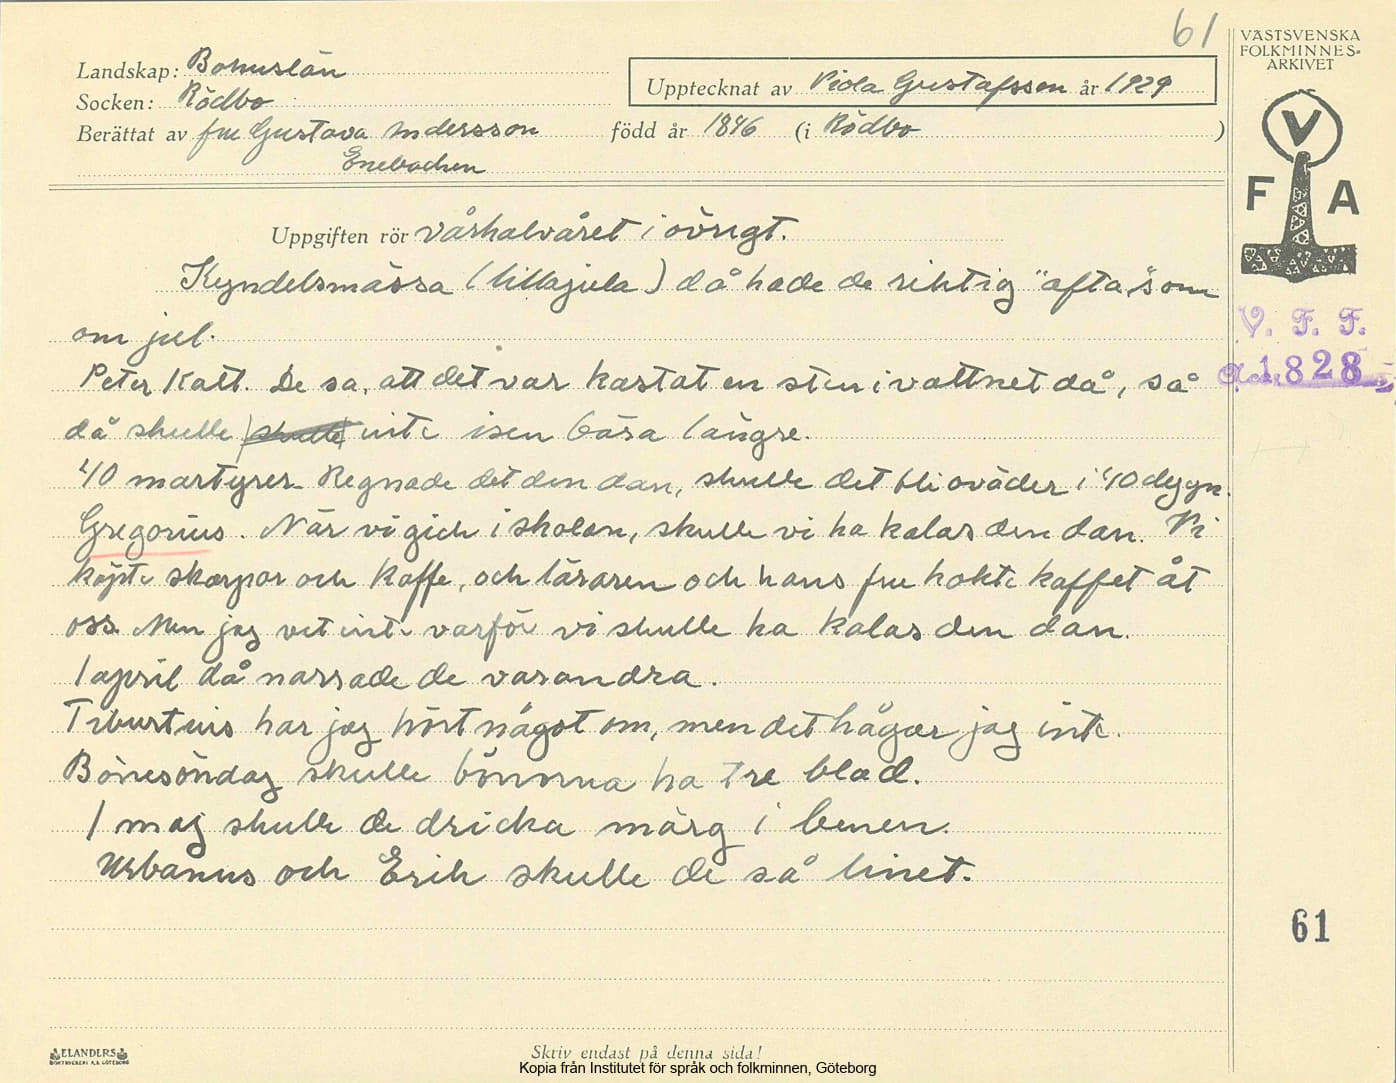 61
VÄSTSVENSKA
FOLKMINNES-
ARKIVET
Landskap: Bohuslän
Socken: Rödbo
Upptecknat av Viola Gustafsson år 1929
Berättat av fru Gustava Andersson född år 1846 (i Rödbo )
Enebacken
V
F A
Uppgiften rör vårhalvåret i övrigt.
Kyndelsmässa (lillajula) då hade de riktig "afta" som
om jul.
Peter Katt. De sa, att det var kastat en sten i vattnet då, så
då skulle skulle inte isen bära längre.
40 martyrer Regnade det den dan, skulle det bli oväder i 40 dygn.
Gregorius. När vi gick i skolan, skulle vi ha kalas den dan. Vi
köpte skorpor och kaffe, och läraren och hans fru kokte kaffet åt
oss. Men jag vet inte varför vi skulle ha kalas den dan.
1 april då narrade de varandra.
Tiburtius har jag hört något om, men det hågar jag inte.
Bönesöndag skulle bönorna ha tre blad.
1 maj skulle de dricka märg i benen.
Urbanus och Erik skulle de så linet.
V. F. F.
Acc. 1828
61
ELANDERS
BOKTRYCKERI A.B. GÖTEBORG
Skriv endast på denna sida!
Kopia från Institutet för språk och folkminnen, Göteborg